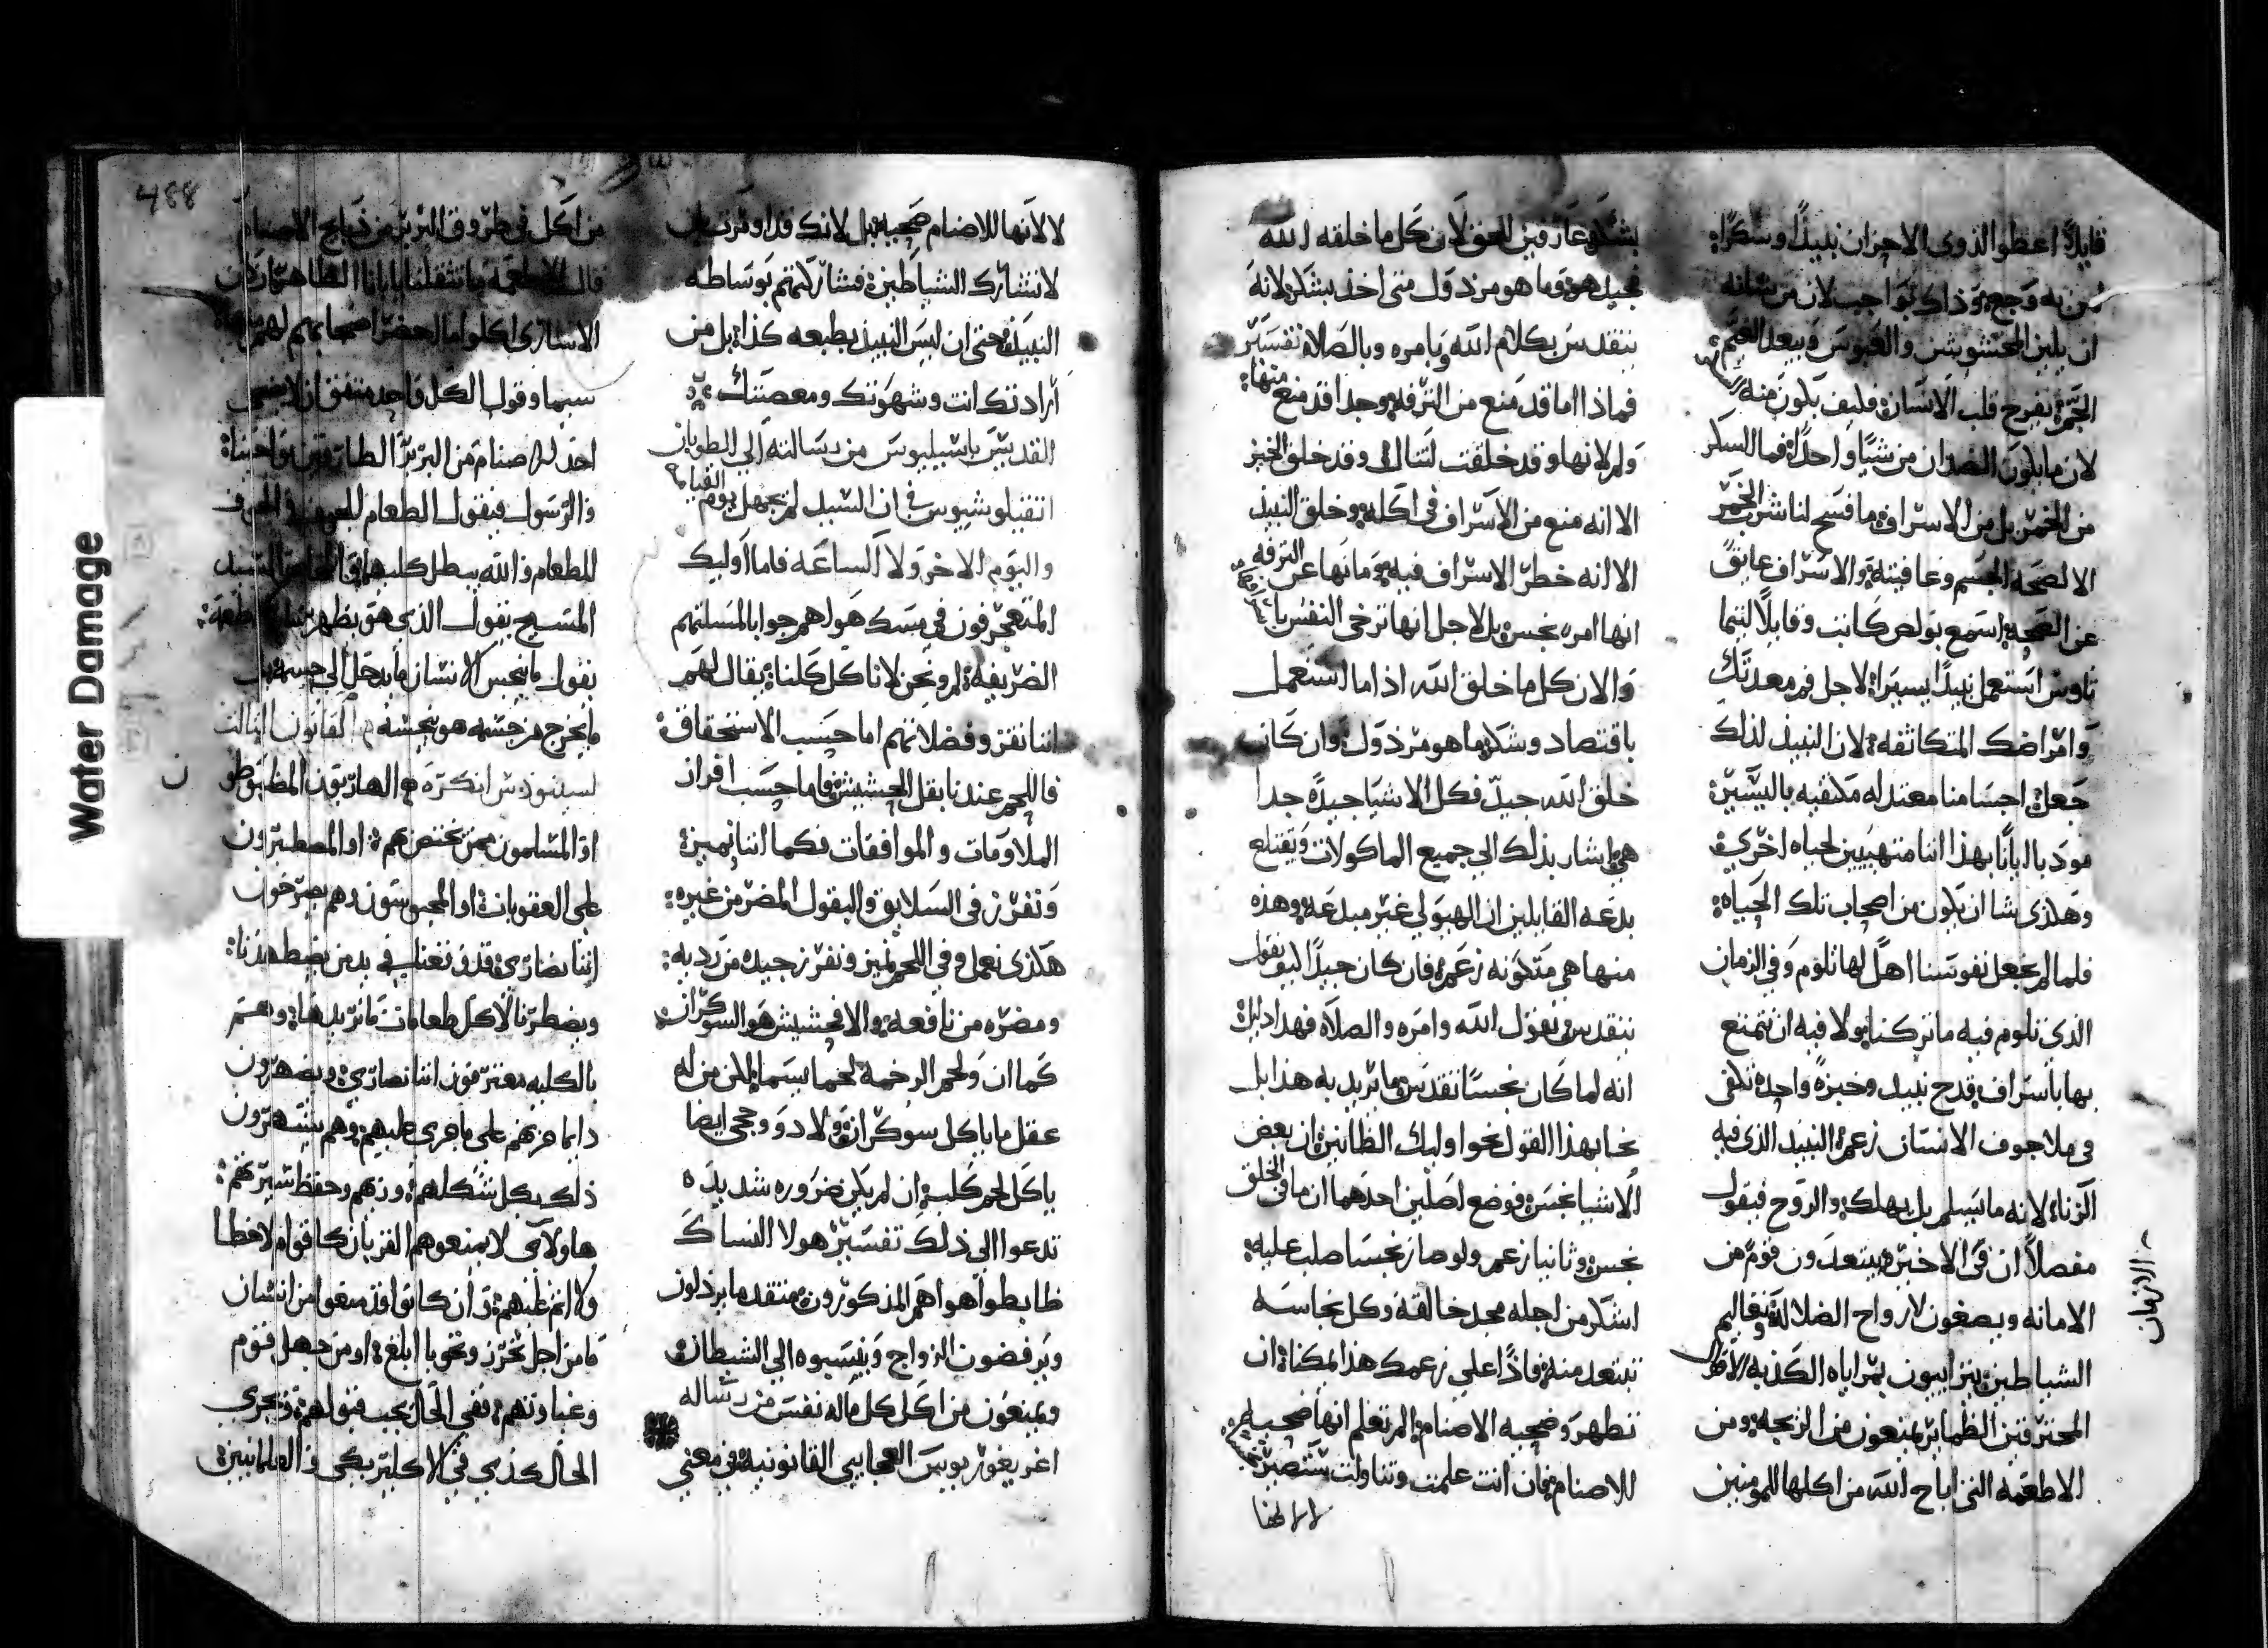 قايلاً اعطوا لذوي الاحزان نبيذًا وسكرًا
به وجع وذاك بواجب لان من شانه
ان يلين المخشوشن والعبوس ويبعد الغم
الخمرة تفرح قلب الانسان فكيف يكون منه
لان ما يكون الضدان من شيًا واحدًا فما السكر
من الخمر بل من الاسراف ما فسح لنا شرب الخمر
الا لصحة الجسم وعافيته والاسراف عايق
عن الصحة اسمع بولص كاتب وقايلاً لتيما
تاوس استعمل نبيذًا يسيرا لاجل فم معدتك
وامراضك المتكاثفه لان النبيذ لذلك
جعل اجسامنا معتدله مكتفيه باليسير
مودبا ايانا بهذا اننا متهييين لحياه اخرى
وهكذى شا ان يكون من اصحاب تلك الحياه
فلما لم نجعل نفوسنا اهلاً لها نلوم وفي الزمان
الذي نلوم فيه ما تركنا ولا فيه ان نتمتع
بها باسراف قدح نبيذ وخبزه واحده تكفي
في ملا جوف الانسان زعم النبيذ الذي فيه
الزنا لانه ما يسلم بل يهلك والروح فيقول
مفصلاً ان في الاخير يبتعدون قوم من
الامانه ويصغون لارواح الضلاله وتعاليم
الشياطين يتراييون بمراياه الكذبه الاقوال
المحترقين الظماير يمنعون من الزيجه ومن
الاطعمه التي اباح الله من اكلها للمومنين
الازمان
بشكر عارفين الحق لان كل ما خلقه الله
فجيد هو وما هو مرذول متى اخذ بشكر لانه
يتقدس بكلام الله وبامره وبالصلاه تفسير
فماذا اما قد منع من الترفه وجدا قد منع منها
ولم لانها وقد خلقت لتنال وقد خلق الخبز
الا انه منع من الاسراف في اكله وخلق النبيذ
الا انه خطر الاسراف فيه وما نها عن الترفه
انها امره نجس بل لاجل انها ترخي النفس با
والان كل ما خلق الله اذا ما استعمل
باقتصاد وشكر ما هو مرذول وان كان
خلق الله جيد فكل الاشيا جيده جدا
هي اشار بذلك الي جميع الماكولات ويقتلع
بدعه القايلين ان الهيولي غير مبدعه وهذه
منها هي متكونه زعم فان كان جيدًا ليو يقول
يتقدس بقول الله وامره والصلاه فهذا دليل
انه لما كان نجسًا تقدس ما يريد به هذا بل
نحا بهذا القول نحو اوليك الظانين ان بعض
الاشيا نجس فوضع اصلين احدهما ان ما في الخلق
نجس وثانيا زعم ولو صار نجسا صلب عليه
اشكر من اجله مجد خالقه وكل نجاسه
تبتعد منه فاذًا علي زعمك هذا لمكنا ان
نتطهر وضحيه الاصنام المر تعلم انها ضحيه
للاصنام فان انت علمت وتناولت ستصير
لا لانها
لا لانها للاصنام ضحيه بل لانك قد اومرت بان
لا تشارك الشياطين فشاركتهم بوساطه
النبيذ حتى ان ليس النبيذ بطبعه كذا بل من
ارادتك انت وشهوتك ومعصيتك
القديس باسيليوس من رسالته الي الطوبان
انفيلوشيوس في ان السبيل لم يجهل يوم القيامه
واليوم الاخر ولا الساعه فاما اوليك
المتعجرفون في مسك هواهم جوابا لمسلتهم
الظريفه لم ونحن لاناكل كلنا يقال لهم
اننا نفرز فضلاتهم اما حسب الاستحقاق
فاللحم عندنا بقل الحشيش فاما حسب افراز
الملاومات والموافقات فكما اننا نميز
ونفرز في السلايق والبقول المضر من غيره
هكذى نعمل وفي اللحم نميز ونفرز جيده من رديه
ومضره من نافعه والا فحشيش هو السوكران
كما ان ولحم الرخمة لحما يسما لكن من له
عقل ما ياكل سوكران ولا ذو وحجي ايضا
ياكل لحم كلب ان لم يكن ضروره شديده
تدعوا الى ذلك تفسير هولا النساك
ظابطوا هواهم المذكورون متقدما يرذلون
ويرفضون الزواج وينسبوه الي الشيطان
ويمنعون من اكل كل ماله نفس من رساله
اغريغوريوس العجايبي القانونيه في معني
488
من اكل في طروق البربر من ذبايح الاصنام
قال الاطعمه ما تثقلنا يا بابا الطاهر ان كان
الاسارى اكلوا ما احضر اصحابهم لهم
سيما وقول الكل واحد متفق ان لا ضحى
احد للاصنام من البربر الطارقين نواحينا
والرسول فيقول الطعام للجوف والجوف
للطعام والله يبطل كليهما
المسيح يقول الذي هو يطهر
يقول ما ينجس الانسان ما يدخل الي جسمه بل
ما يخرج من جسمه هو ينجسه القانون الثالث
لسينودس انكره الهاربون المظبوطو
او المسلمون ممن نختص هم او المصطبرون
على العقوبات او المحبوسون وهم يصرخون
اننا نصارى قد وقعنا في يد من يضطهدنا
ويضطرنا لاكل طعامات ما نريدها وهم
بالكليه معترفون اننا نصارى ويضهرون
دايما حزنهم علي ما جرى عليهم وهم يشتهرون
ذلك بكل شكلهم وزيهم وحفظ سيرتهم
هاولآيي لا يمنعوهم القربان كاقوام لا خطا
ولا اثم عليهم وان كانوا قد منعوا من انسان
ما من اجل تحرز وتحوبا ابلغ او من جهل قوم
وغباوتهم ففي الحال يجب قبولهم وتجري
الحال كذي في الاكليريكي والعلمانيين